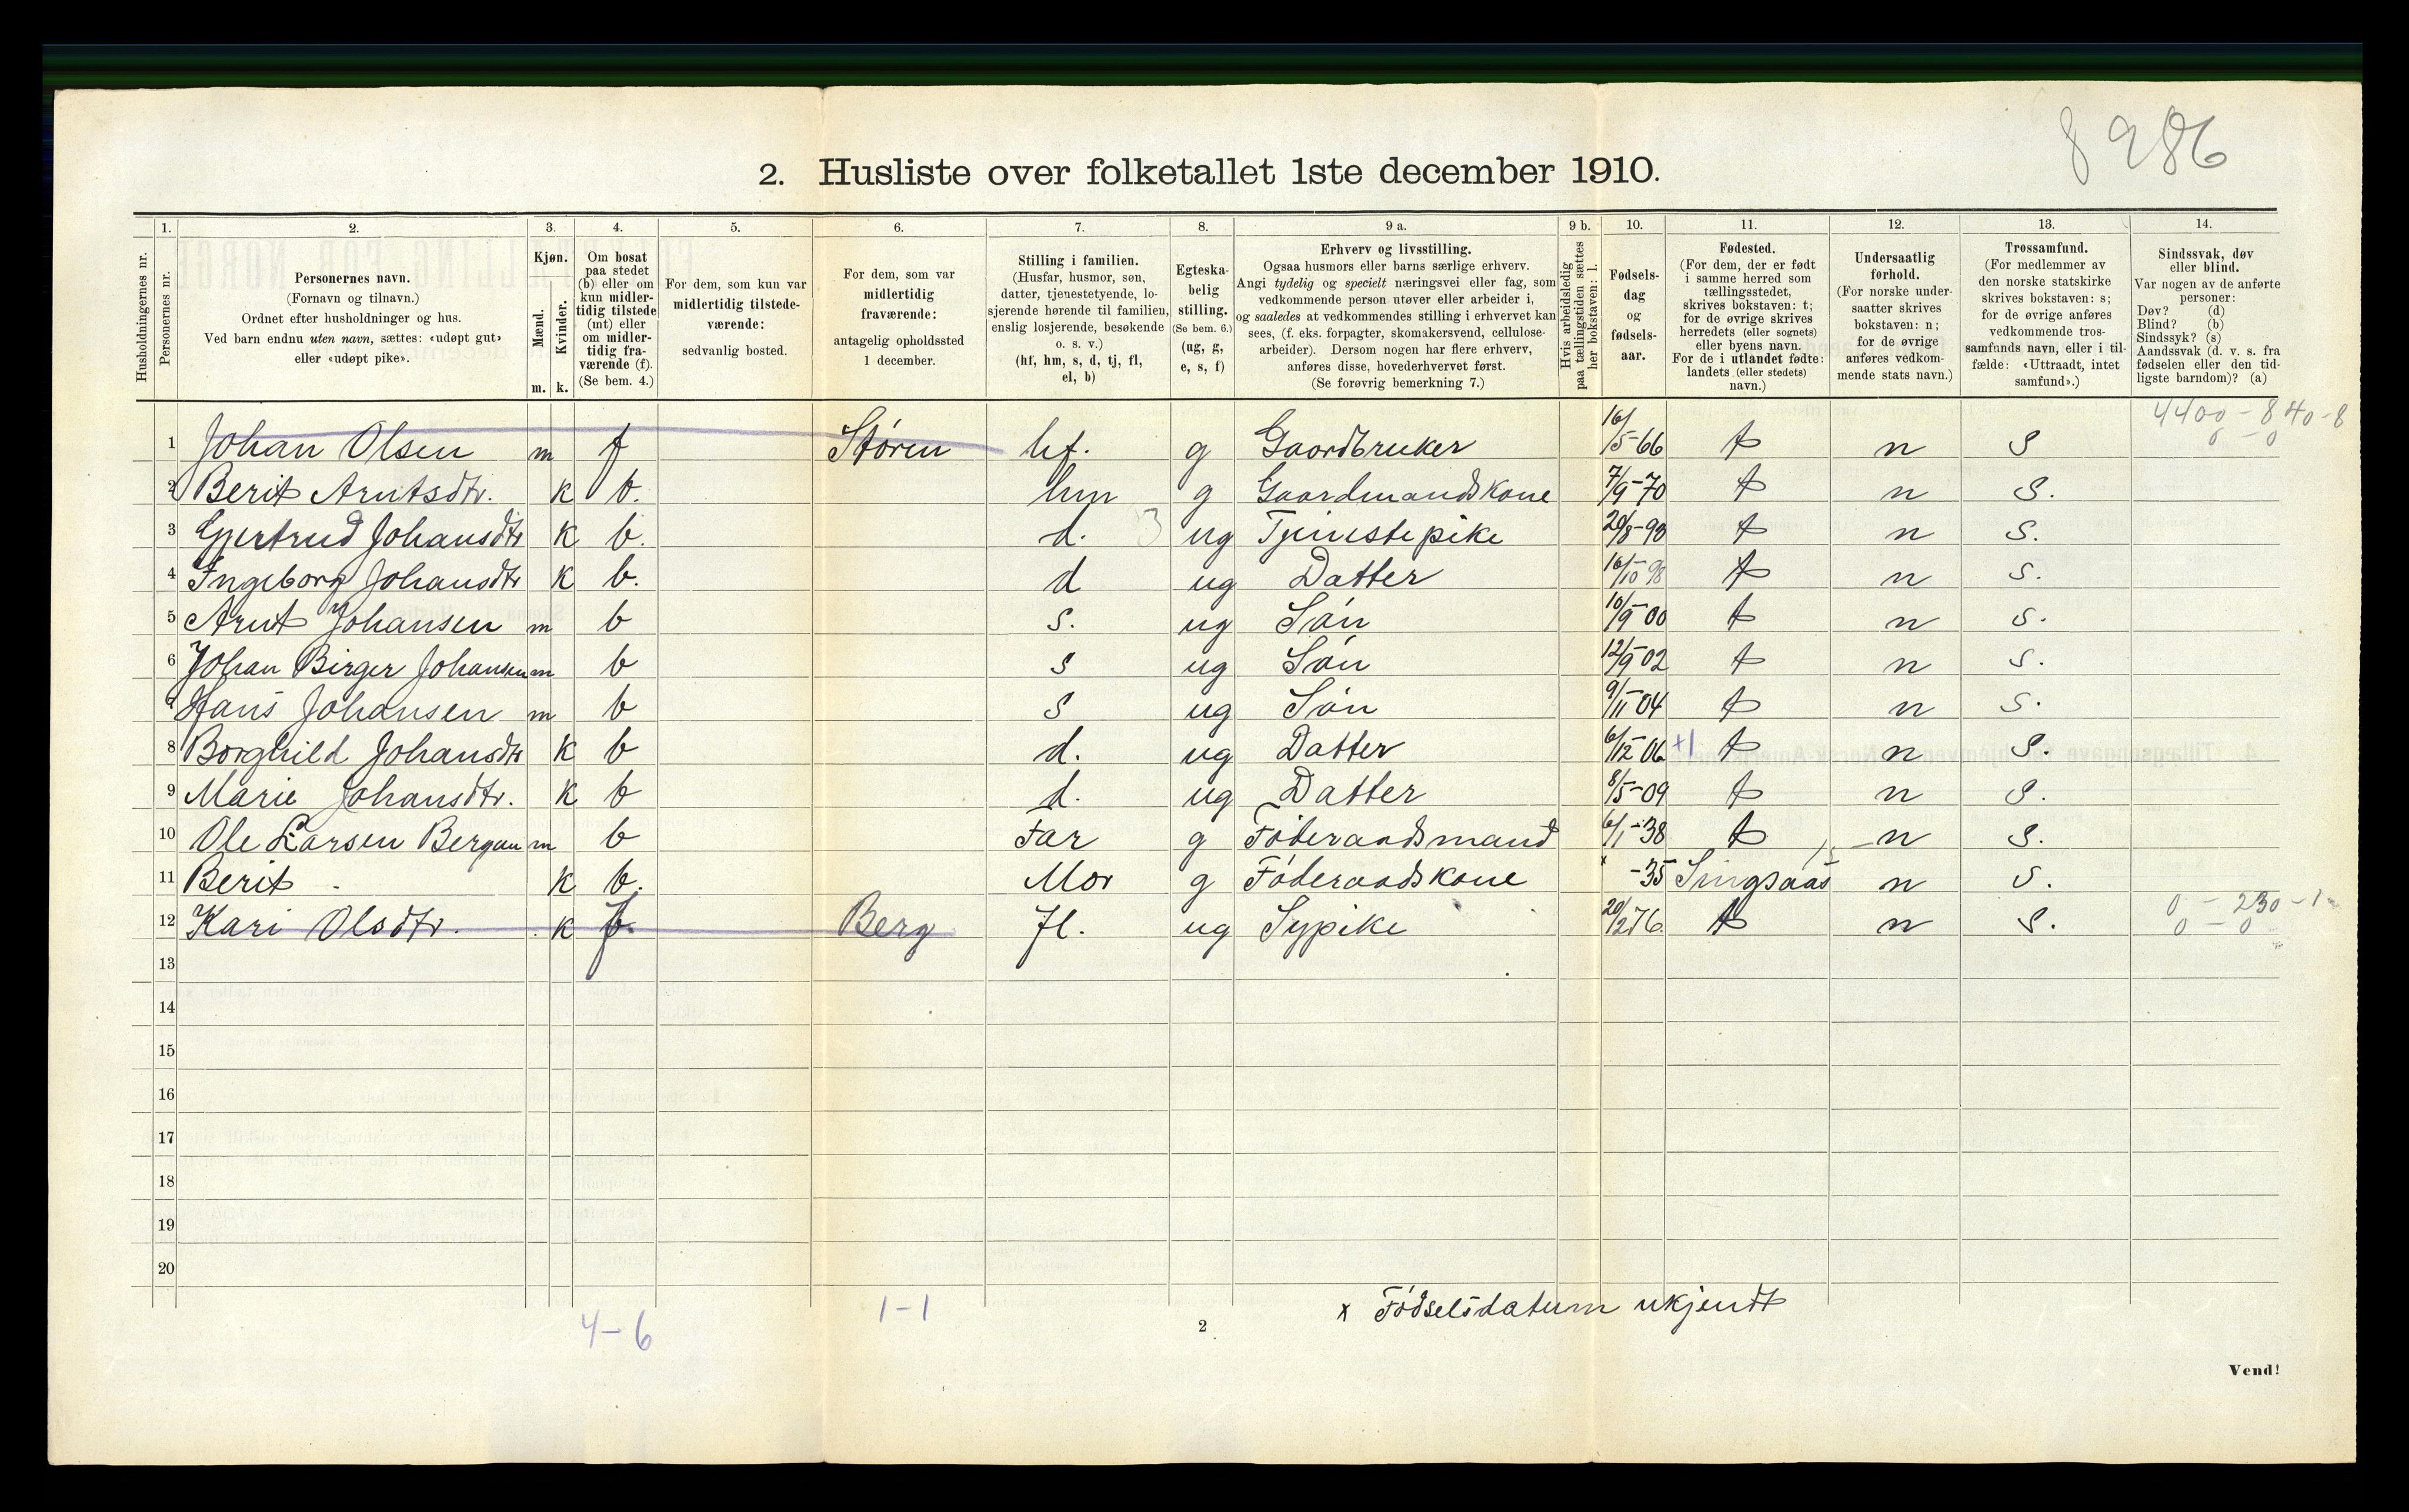 8 986
2. Husliste over folketallet 1ste december 1910.
1. 2. 3. 4. 5. 6. 7. 8. 9 a. 9 b. 10. 11. 12. 13. 14.
Husholdningernes nr.
Personernes nr.
Personernes navn.
(Fornavn og tilnavn.)
Ordnet efter husholdninger og hus.
Ved barn endnu uten navn, sættes: «udøpt gut»
eller «udøpt pike».
Kjøn.
Mænd.
Kvinder.
m. k.
Om bosat
paa stedet
(b) eller om
kun midler-
tidig tilstede
(mt) eller
om midler-
tidig fra-
værende (f).
(Se bem. 4.)
For dem, som kun var
midlertidig tilstede-
værende:
sedvanlig bosted.
For dem, som var
midlertidig
fraværende:
antagelig opholdssted
1 december.
Stilling i familien.
(Husfar, husmor, søn,
datter, tjenestetyende, lo-
sjerende hørende til familien,
enslig losjerende, besøkende
o. s. v.)
(hf, hm, s, d, tj, fl,
el, b)
Egteska-
belig
stilling.
(Se bem. 6.)
(ug, g,
e, s, f)
Erhverv og livsstilling.
Ogsaa husmors eller barns særlige erhverv.
Angi tydelig og specielt næringsvei eller fag, som
vedkommende person utøver eller arbeider i,
og saaledes at vedkommendes stilling i erhvervet kan
sees, (f. eks. forpagter, skomakersvend, cellulose-
arbeider). Dersom nogen har flere erhverv,
anføres disse, hovederhvervet først.
(Se forøvrig bemerkning 7.)
Hvis arbeidsledig
paa tællingstiden sættes
her bokstaven: l.
Fødsels-
dag
og
fødsels-
aar.
Fødested.
(For dem, der er født
i samme herred som
tællingsstedet,
skrives bokstaven: t;
for de øvrige skrives
herredets (eller sognets)
eller byens navn.
For de i utlandet fødte:
landets (eller stedets)
navn.)
Undersaatlig
forhold.
(For norske under-
saatter skrives
bokstaven: n;
for de øvrige
anføres vedkom-
mende stats navn.)
Trossamfund.
(For medlemmer av
den norske statskirke
skrives bokstaven: s;
for de øvrige anføres
vedkommende tros-
samfunds navn, eller i til-
fælde: «Uttraadt, intet
samfund».)
Sindssvak, døv
eller blind.
Var nogen av de anførte
personer:
Døv? (d)
Blind? (b)
Sindssyk? (s)
Aandssvak (d. v. s. fra
fødselen eller den tid-
ligste barndom)? (a)
4400 - 840-8
0 - 0
1 Johan Olsen m f Støren hf. g Gaardbruker 16/5-66 t n S
2 Berit Arntsdtr. k b. hm g Gaardmandskone 7/9-70 t n S.
3 Gjertrud Johansdtr k b. d. 3 ug Tjenestepike 20/8-90 t n S.
4 Ingeborg Johansdtr k b. d ug Datter 16/10 98 t n S.
5 Arnt Johansen m b s. ug Søn 10/9-00 t n S.
6 Johan Birger Johansen m b s ug Søn 12/9 02 t n S.
Hans Johansen m b s ug Søn 9/11 04 t n S.
8 Borghild Johansdtr k b d. ug Datter 6/12 06 +1 t n S.
9 Marie Johansdtr. k b d. ug Datter 8/5-09 t n S.
10 Ole Larsen Bergan m b Far g Føderaadsmand 6/1-38 t n S.
11 Berit - k b. Mor g Føderaadskone x -35 Singsaas n S.
12 Kari Olsdtr. k f Berg fl. ug Sypike 20/2 76 t n S. 0 - 230 - 1
0 - 0
13
14
15
16
17
18
19
20
4-6
1-1
x Fødselsdatum ukjendt
2
Vend!